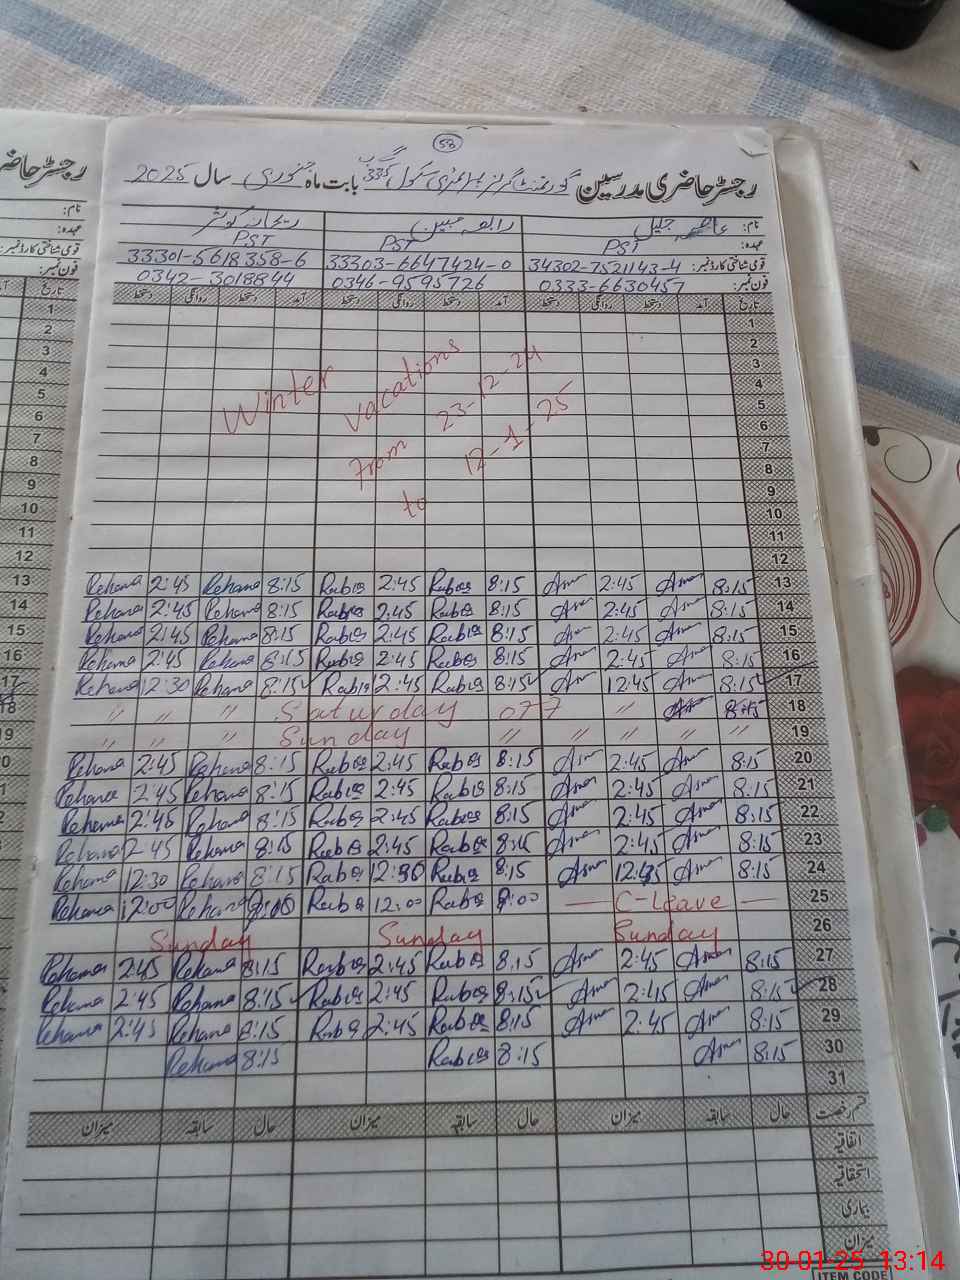 53
رجسٹر حاضری مدرسین گورنمنٹ گرلز پرائمری سکول بابت ماہ جنوری سال 2025
نام: عاصمہ جلیل رابعہ مبین ریحانہ کوثر
عہدہ: PST PST PST
قومی شناختی کارڈ نمبر: 34302-7521143-4 33303-6647424-0 33301-5618358-6
فون نمبر: 0333-6630457 0346-9595726 0342-3018844
تاریخ آمد دستخط روانگی دستخط آمد دستخط روانگی دستخط آمد دستخط روانگی دستخط
1
2
3
4
5
6
7
8
9
10
11
12
Winter vacations
From 23-12-24
to 12-1-25
Rehana 2:45 Rehana 8:15 Rabia 2:45 Rabia 8:15 Asma 2:45 Asma 8:15 13
Rehana 2:45 Rehana 8:15 Rabia 2:45 Rabia 8:15 Asma 2:45 Asma 8:15 14
Rehana 2:45 Rehana 8:15 Rabia 2:45 Rabia 8:15 Asma 2:45 Asma 8:15 15
Rehana 2:45 Rehana 8:15 Rabia 2:45 Rabia 8:15 Asma 2:45 Asma 8:15 16
Rehana 12:30 Rehana 8:15 Rabia 12:45 Rabia 8:15 Asma 12:45 Asma 8:15 17
" " " Saturday off " " Asma 8:15 18
" " " Sunday " " " " " 19
Rehana 2:45 Rehana 8:15 Rabia 2:45 Rabia 8:15 Asma 2:45 Asma 8:15 20
Rehana 2:45 Rehana 8:15 Rabia 2:45 Rabia 8:15 Asma 2:45 Asma 8:15 21
Rehana 2:45 Rehana 8:15 Rabia 2:45 Rabia 8:15 Asma 2:45 Asma 8:15 22
Rehana 2:45 Rehana 8:15 Rabia 2:45 Rabia 8:15 Asma 2:45 Asma 8:15 23
Rehana 12:30 Rehana 8:15 Rabia 12:30 Rabia 8:15 Asma 12:45 Asma 8:15 24
Rehana 12:00 Rehana 9:00 Rabia 12:00 Rabia 9:00 — C-Leave — 25
Sunday Sunday Sunday 26
Rehana 2:45 Rehana 8:15 Rabia 2:45 Rabia 8:15 Asma 2:45 Asma 8:15 27
Rehana 2:45 Rehana 8:15 Rabia 2:45 Rabia 8:15 Asma 2:45 Asma 8:15 28
Rehana 2:45 Rehana 8:15 Rabia 2:45 Rabia 8:15 Asma 2:45 Asma 8:15 29
Rehana 8:15 Rabia 8:15 Asma 8:15 30
31
قسم رخصت حال سابقہ میزان حال سابقہ میزان حال سابقہ میزان
اتفاقیہ
استحقاقیہ
بیماری
میزان
ITEM CODE
30-01-25 13:14
رجسٹر حاضر
نام:
عہدہ:
قومی شناختی کارڈ نمبر:
فون نمبر:
تاریخ
1
2
3
4
5
6
7
8
9
10
11
12
13
14
15
16
17
18